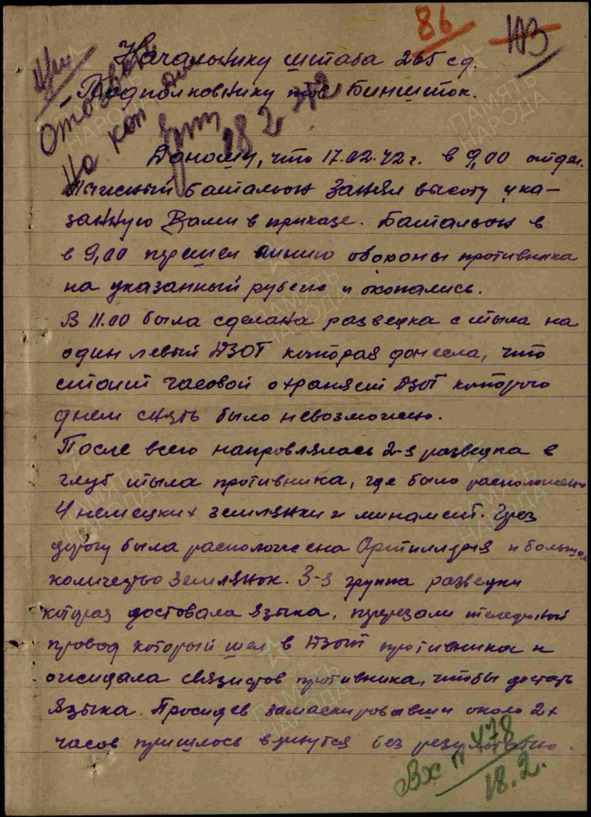 86 103
Начальнику штаба 265 сд.
Подполковнику тов Биншток.
Отозвать
на ком
18 2 42
Доношу, что 17.02.42 г. в 9,00 отдел.
лыжный баталион занял высоту ука-
занную Вами в приказе. Баталион в
в 9,00 перешел линию обороны противника
на указанный рубеж и окопались.
В 11.00 была сделана разведка с тыла на
один левый ДЗОТ которая донесла, что
стоит часовой охраняет ДЗОТ которого
днем снять было невозможно.
После всего напровлялась 2-я разведка в
глуб тыла противника, где было расположено
4 немецких землянки и минамет. Через
дорогу была расположена Артиллерия и большое
количество землянок. 3-я группа разведки
которая доставала языка, перерезали телефоный
провод который шел в ДЗОТ противника и
ожидала связистов противника, чтобы достать
языка. Просидев замаскировавши около 2х
часов пришлось вернутся без результатно.
Вх № 478
18.2.
ПАМЯТЬ НАРОДА